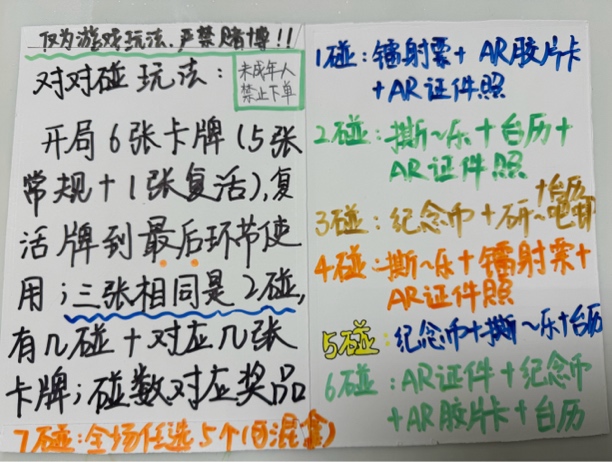 仅为游戏玩法、严禁赌博!!
对对碰 玩法:
未成年人
禁止下单
开局6张卡牌(5张
常规+1张复活),复
活牌到最后环节使
用;三张相同是2碰,
有几碰+对应几张
卡牌;碰数对应奖品
7碰:全场任选5个(自混盒)
1碰:镭射票+AR胶片卡
+AR证件照
2碰:撕~乐+台历+
AR证件照
3碰:纪念币+研~吧唧
+台历
4碰:撕~乐+镭射票+
AR证件照
5碰:纪念币+撕~乐+台历
6碰:AR证件+纪念币
+AR胶片卡+台历